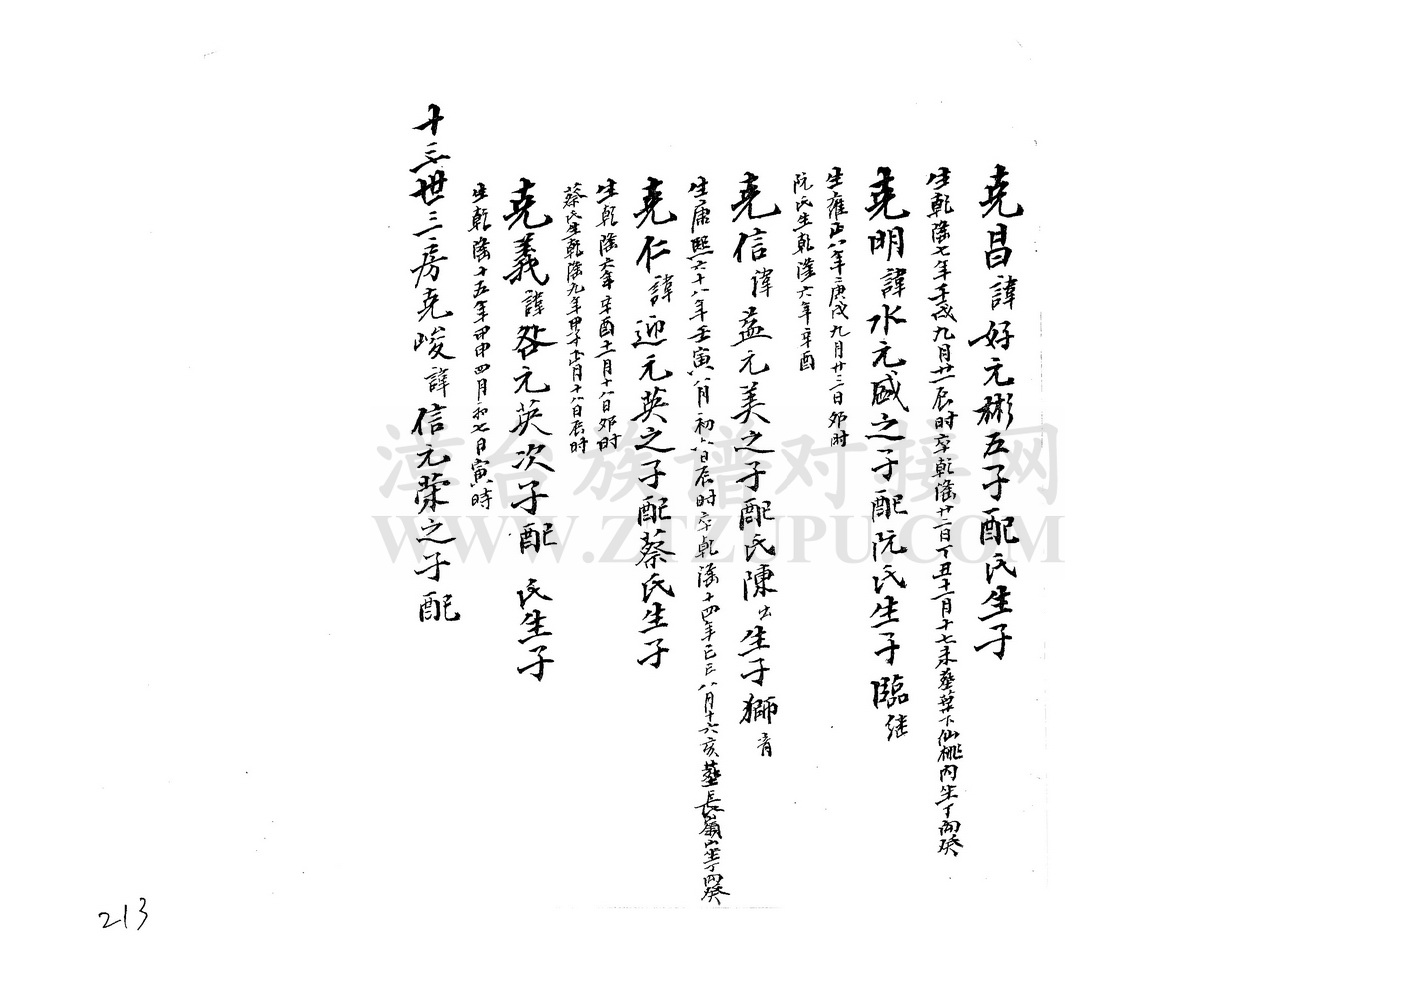 尭昌諱好元彬五子配氏生子
生乾隆七年壬戌九月廿一辰时卒乾隆廿一日丁丑十一月十七未塟葉下仙桃内坐丁向癸
尭明諱水元盛之子配阮氏生子臨继
生雍正八年庚戌九月廿三日卯时
阮氏生乾隆六年辛酉
尭信諱益元美之子配氏陳出生子獅青
生康熙六十八年壬寅八月初六日辰时卒乾隆十四年己巳八月十六亥塟長嶺山坐丁向癸
尭仁諱迎元英之子配蔡氏生子
生乾隆六年辛酉十一月十八日卯时
蔡氏生乾隆九年甲子十一月十八日辰时
尭義諱咎元英次子配 氏生子
生乾隆十五年甲申四月初七日寅時
十三世三房尭峻諱信元荣之子配
213
漳台族谱对接网
WWW.ZTZUPU.COM